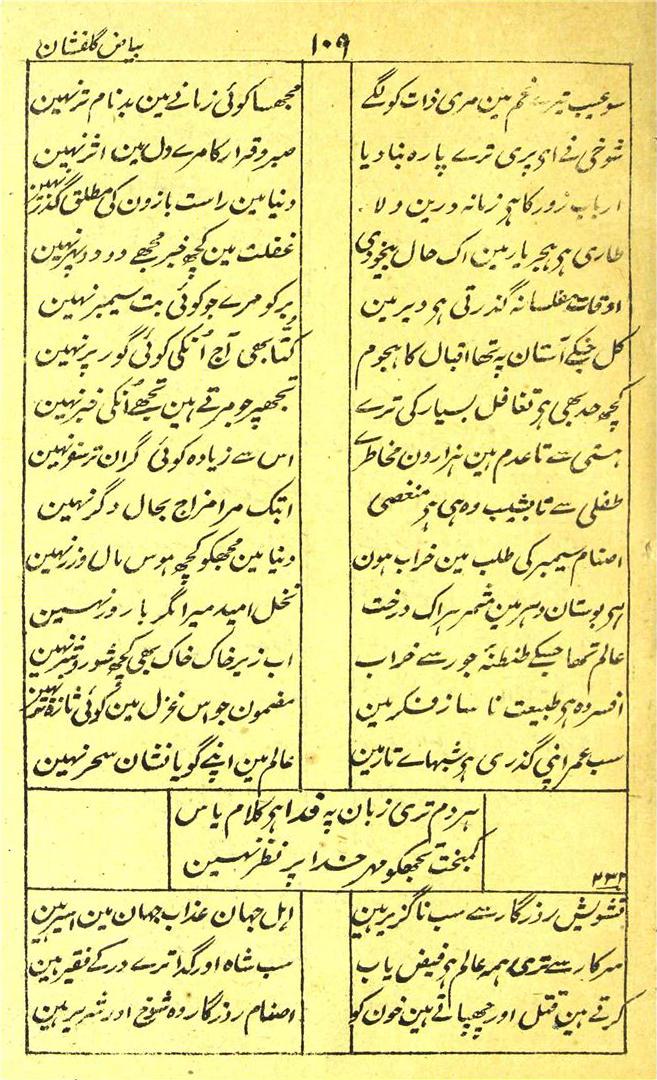 ۱۰۹ بیاض گلفشان
سو عیب تیرے غم مین مری ذات کو لگے مجھسا کوئی زمانے مین بدنام تر نہین
شوخی نے اے پری ترے پارہ بنا دیا صبر و قرار کا مرے دل مین اثر نہین
ارباب زور کا ہی زمانہ درین ولا دنیا مین راست بازون کی مطلق گذر نہین
طاری ہی ہجر یار مین اک حال بیخودی غفلت مین کچھ خبر مجھے دو دو پہر نہین
اوقات مفلسانہ گذرتی ہی دیر مین بر کو مرے جو کوئی بت سیمبر نہین
کل جنکے آستان پہ تھا اقبال کا ہجوم کتّا بھی آج اُنکی کوئی گور پر نہین
کچھ حد بھی ہی تغافل بسیار کی ترے تجھپر جو مرتے ہین تجھے اُنکی خبر نہین
ہستی سے تا عدم ہین ہزارون مخاطرے اس سے زیادہ کوئی گران تر سفر نہین
طفلی سے تا بشیب وہی ہی منغصی ابتک مرا مزاج بحال دگر نہین
اصنام سیمبر کی طلب مین خراب ہون دنیا مین مجھکو کچھ ہوس مال و زر نہین
ہی بوستان دہر مین مثمر ہر اک درخت نخل امید میرا مگر بارور نہین
عالم تھا جسکے طنطنۂ جور سے خراب اب زیر خاک خاک بھی کچھ شور و شر نہین
افسردہ ہی طبیعت ناساز فکر مین مضمون جو اس غزل مین کوئی تازہ تر نہین
سب عمر اپنی گذری ہی شبہاے تار مین عالم مین اپنے گویا نشان سحر نہین
ہر دم تری زبان پہ فدا ہی کلام یاس
کمبخت تجھکو مہر خدا پر نظر نہین
۲۳۲
تشویش روزگار سے سب ناگزیر ہین اہل جہان عذاب جہان مین اسیر ہین
سرکار سے تری ہمہ عالم ہی فیض یاب سب شاہ اور گدا ترے در کے فقیر ہین
کرتے ہین قتل اور چھپاتے ہین خون کو اصنام روزگار وہ شوخ اور شریر ہین